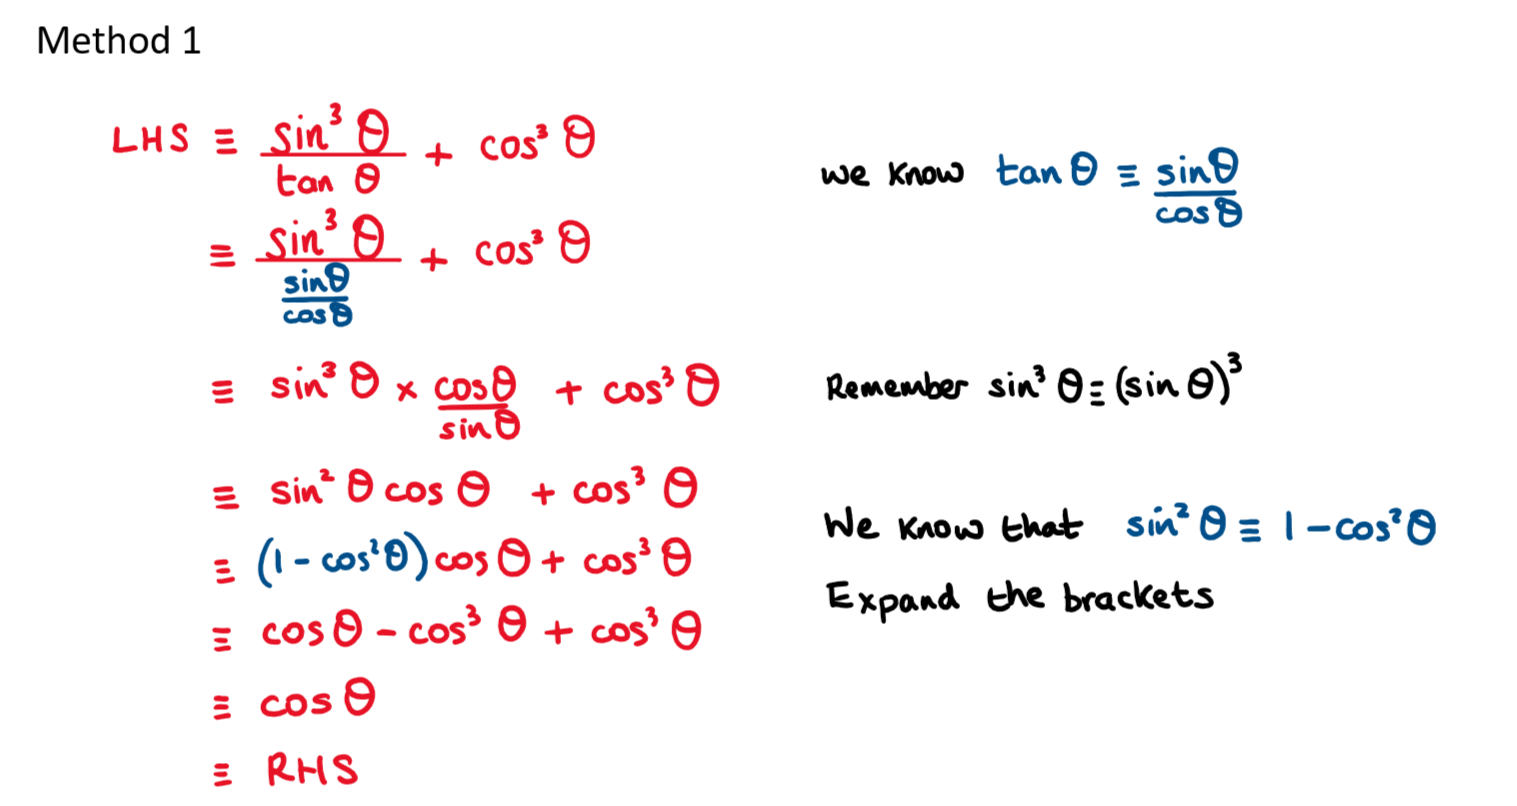 Method 1
LHS ≡ sin³ θ / tan θ + cos³ θ
we know tan θ ≡ sinθ / cosθ
≡ sin³ θ / (sinθ / cosθ) + cos³ θ
≡ sin³ θ × cosθ / sinθ + cos³ θ
Remember sin³ θ ≡ (sin θ)³
≡ sin² θ cos θ + cos³ θ
We know that sin² θ ≡ 1 - cos² θ
≡ (1 - cos²θ) cos θ + cos³ θ
Expand the brackets
≡ cos θ - cos³ θ + cos³ θ
≡ cos θ
≡ RHS